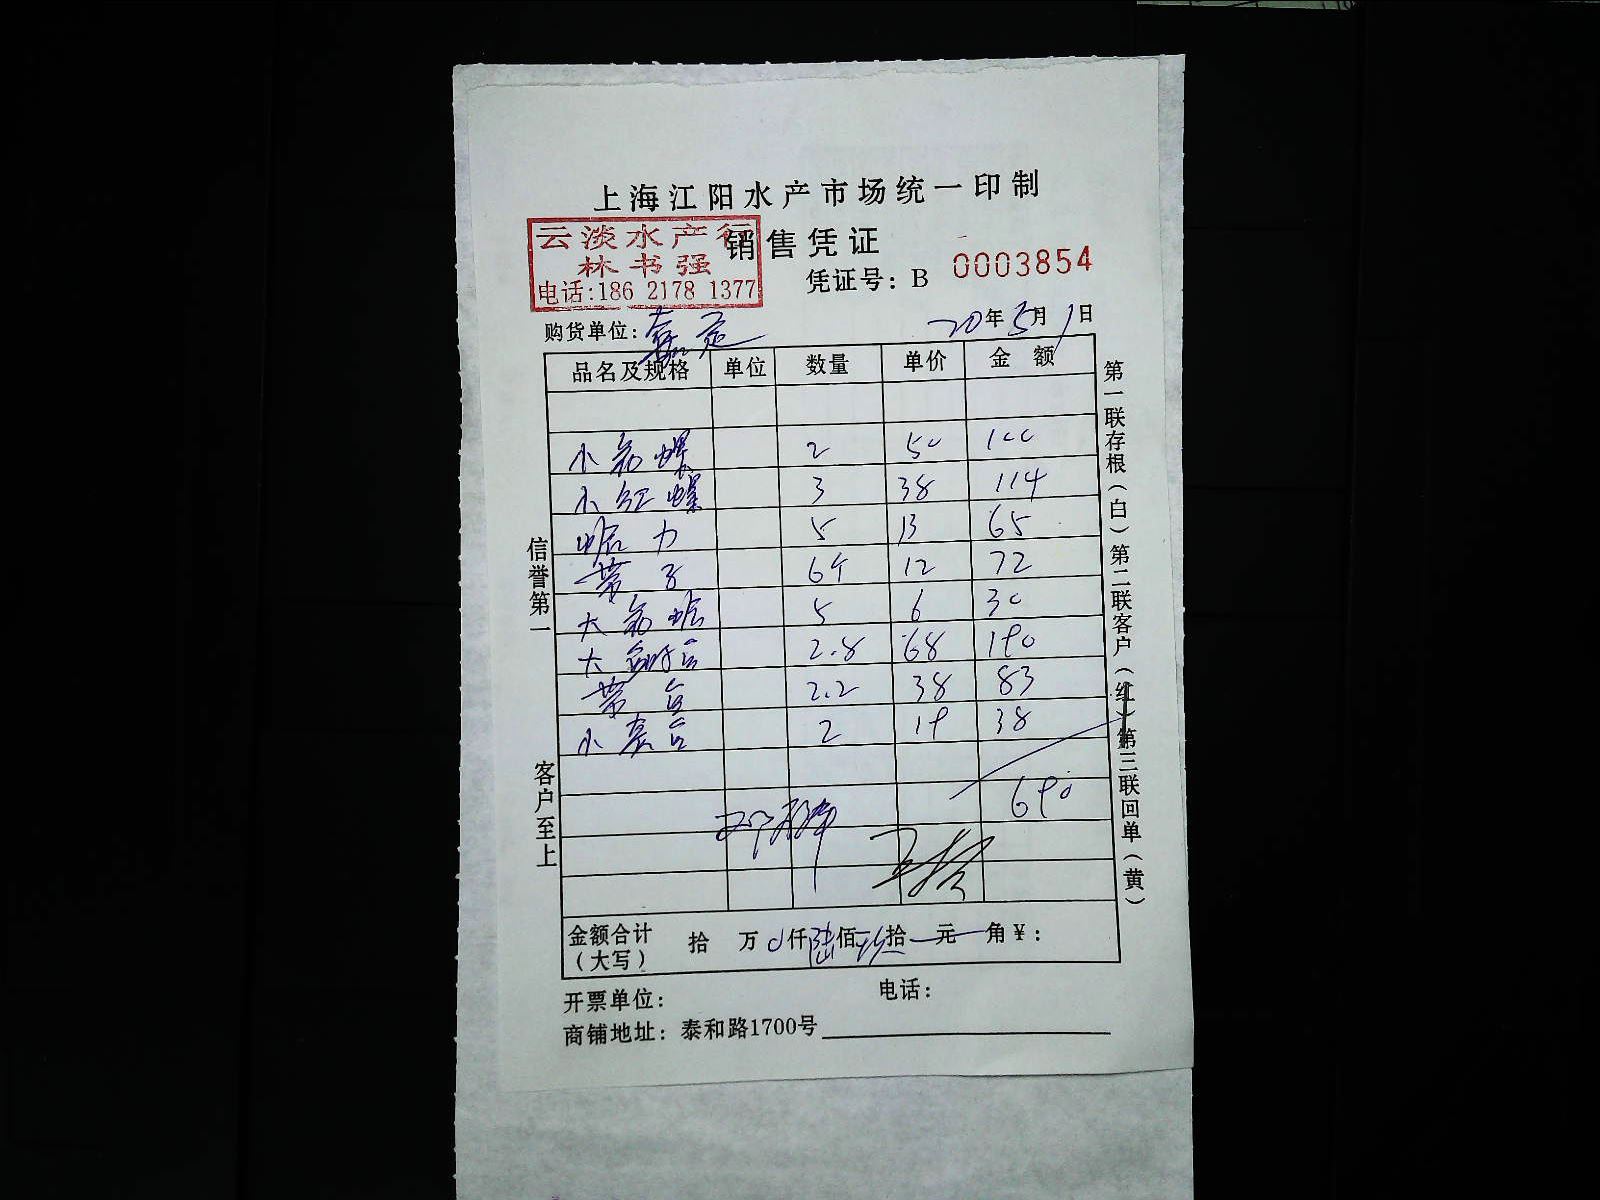 上海江阳水产市场统一印制
云淡水产行
销售凭证
林书强
凭证号：B 0003854
电话:186 2178 1377
购货单位：嘉定 20年5月1日
品名及规格 单位 数量 单价 金额
小 螺 2 50 100
小红螺 3 38 114
蛤力 5 13 65
带子 6个 12 72
大 蛤 5 6 30
大 2.8 68 190
带 2.2 38 83
小 2 19 38
690
金额合计（大写） 拾 万 0仟陆佰玖拾 元 角￥：
开票单位： 电话：
商铺地址：泰和路1700号
信誉第一 客户至上
第一联存根（白）第二联客户（红）第三联回单（黄）